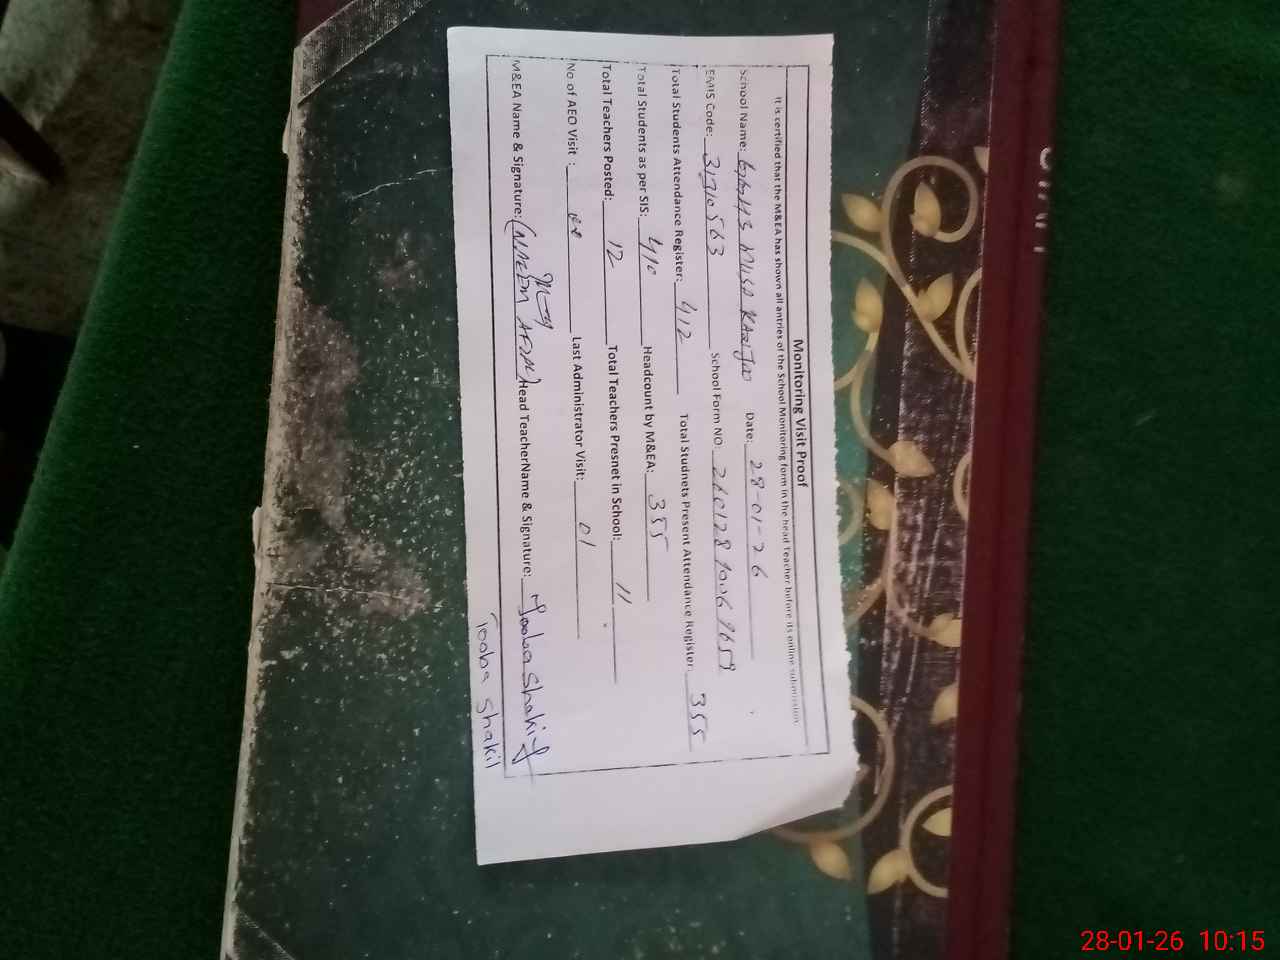 Monitoring Visit Proof
It is certified that the M&EA has shown all antries of the School Monitoring form in the head Teacher before its online submission.
School Name: GGHS MUSA Date: 28-01-26
EMIS Code: 31310563 School Form NO: 
Total Students Attendance Register: 412 Total Studnets Present Attendance Register: 355
Total Students as per SIS: 410 Headcount by M&EA: 355
Total Teachers Posted: 12 Total Teachers Presnet in School: 11
No of AEO Visit : Last Administrator Visit: 01
M&EA Name & Signature: (NAEEM AFZAL) Head TeacherName & Signature: Tooba Shakil
Tooba Shakil
28-01-26 10:15